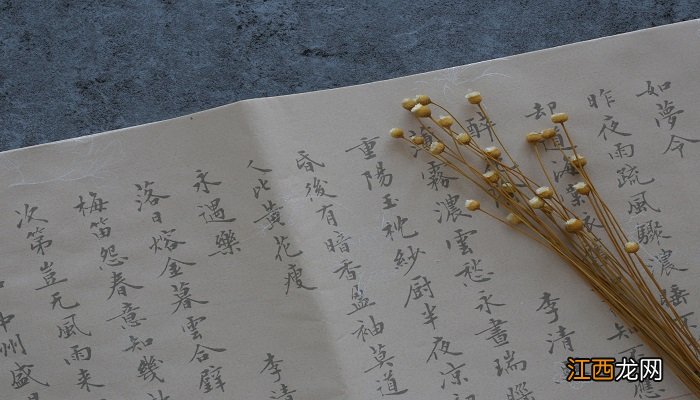 如夢令
昨夜雨疏風驟濃睡不
却道海棠依 知 應
醉 李清
薄霧濃雲愁永晝瑞腦
重陽玉枕紗厨半夜凉初
昏後有暗香盈袖莫道
人比黃花瘦
永遇樂 李清
落日熔金暮雲合璧
梅笛怨春意知幾
次第豈无風雨来
中州盛
江西龙网